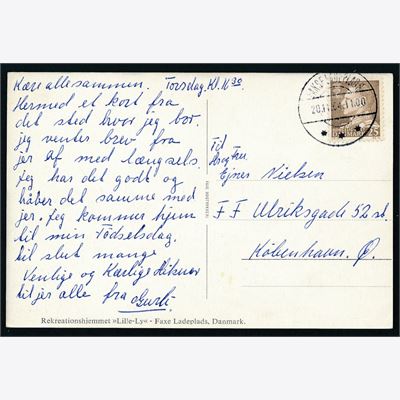 Kære allesammen. Torsdag Kl. 11 30
Hermed et kort fra
det sted hvor jeg bor,
jeg venter brev fra
jer af med længsels.
Jeg har det godt og
håber det samme med
jer. Jeg kommer hjem
til min Födselsdag.
til slut mange
Venlige og Kærlige Hilsner
til jer alle fra Gurli
Til
Ejner Nielsen
F F Ulriksgade 52 st.
København. Ø.
20.11. 11.00
25
Rekreationshjemmet »Lille-Ly« · Faxe Ladeplads, Danmark.